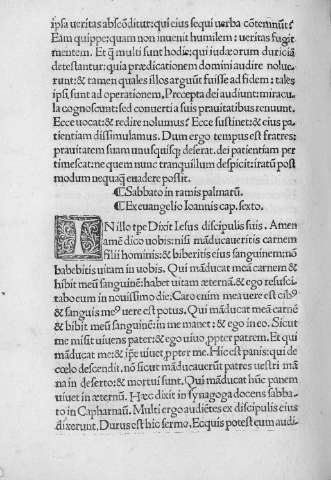 ipsa ueritas abscõditur: qui eius sequi uerba cõtemnũt?
Eam quippe: quam non inuenit humilem: ueritas fugit
mentem. Et q̃ multi sunt hodie: qui iudæorum duriciã
detestantur: quia prædicationem domini audire nolue
runt: & tamen quales illos arguũt fuisse ad fidem: tales
ipsi sunt ad operationem. Precepta dei audiunt: miracu
la cognoscunt: sed conuerti a suis prauitatibus renuunt.
Ecce uocat: & redire nolumus. Ecce sustinet: & eius pa
tientiam dissimulamus. Dum ergo tempus est fratres:
prauitatem suam unusquisq; deserat. dei patientiam per
timescat: ne quem nunc tranquillum despicit: iratũ post
modum nequaq̃ euadere possit.
¶Sabbato in ramis palmarũ.
¶Ex euangelio Ioannis cap. sexto.
IN illo tpe Dixit Iesus discipulis suis. Amen
amẽ dico uobis: nisi mãducaueritis carnem
filii hominis: & biberitis eius sanguinem: nõ
habebitis uitam in uobis. Qui mãducat mea carnem &
bibit meũ sanguinẽ: habet uitam æternã. & ego resusci
tabo eum in nouissimo die. Caro enim mea uere est cib9
& sanguis me9 uere est potus. Qui mãducat meã carnẽ
& bibit meũ sanguinẽ: in me manet: & ego in eo. Sicut
me misit uiuens pater: & ego uiuo ꝓpter patrem. Et qui
mãducat me: & ip̃e uiuet ꝓpter me. Hic est panis: qui de
cœlo descendit. nõ sicut mãducauerũt patres uestri mã
na in deserto: & mortui sunt. Qui mãducat hũc panem
uiuet in æternũ. Hæc dixit in synagoga docens sabba-
to in Capharnaũ. Multi ergo audiẽtes ex discipulis eius
dixerunt. Durus est hic sermo. Ecquis potest eum audi-